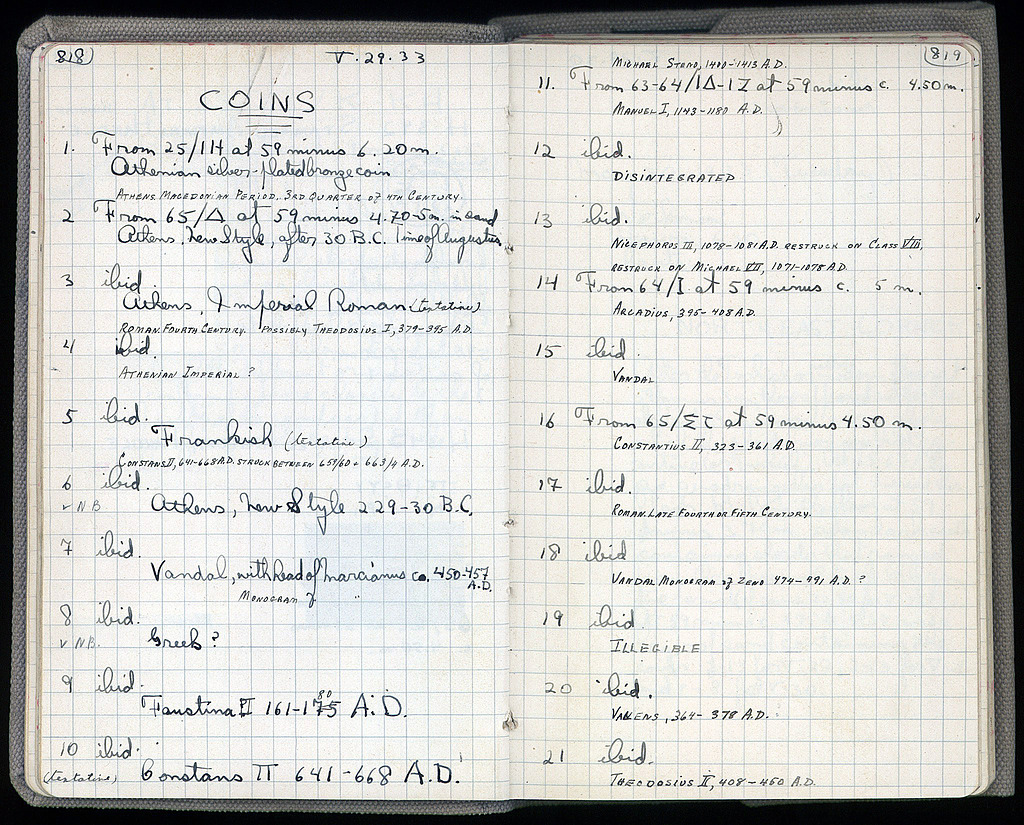 818
V. 29. 33
COINS
1. From 25/ΙΗ at 59 minus 6.20m.
Athenian silver-plated bronze coin
ATHENS MACEDONIAN PERIOD, 3RD QUARTER OF 4TH CENTURY.
2 From 65/Δ at 59 minus 4.70-5m. in sand
Athens, New Style, after 30 B.C. Time of Augustus
3 ibid.
Athens, Imperial Roman (tentative)
ROMAN. FOURTH CENTURY. POSSIBLY THEODOSIUS I, 379-395 A.D.
4 ibid.
ATHENIAN IMPERIAL ?
5 ibid.
Frankish (tentative)
CONSTANS II, 641-668 A.D. STRUCK BETWEEN 659/60 + 663/4 A.D.
6 ibid.
v N B Athens, New Style 229-30 B.C.
7 ibid.
Vandal, with head of Marcianus ca. 450-457 A.D.
MONOGRAM of "
8 ibid.
v N B. Greek ?
9 ibid.
80
Faustina II 161-175 A.D.
10 ibid.
(tentative) Constans II 641-668 A.D.
819
MICHAEL STENO, 1400-1413 A.D.
11. From 63-64/ΙΔ-ΙΖ at 59 minus c. 4.50 m.
MANUEL I, 1143-1180 A.D.
12 ibid.
DISINTEGRATED
13 ibid.
NICEPHORUS III, 1078-1081 A.D. RESTRUCK ON CLASS VIII,
RESTRUCK ON MICHAEL VII, 1071-1078 A.D.
14 From 64/I at 59 minus c. 5 m.
ARCADIUS, 395-408 A.D.
15 ibid.
VANDAL
16 From 65/ΣΤ at 59 minus 4.50 m.
CONSTANTIUS II, 323-361 A.D.
17 ibid.
ROMAN. LATE FOURTH OR FIFTH CENTURY.
18 ibid
VANDAL MONOGRAM OF ZENO 474-491 A.D. ?
19 ibid.
ILLEGIBLE
20 ibid.
VALENS, 364-378 A.D.
21 ibid.
THEODOSIUS II, 408-450 A.D.